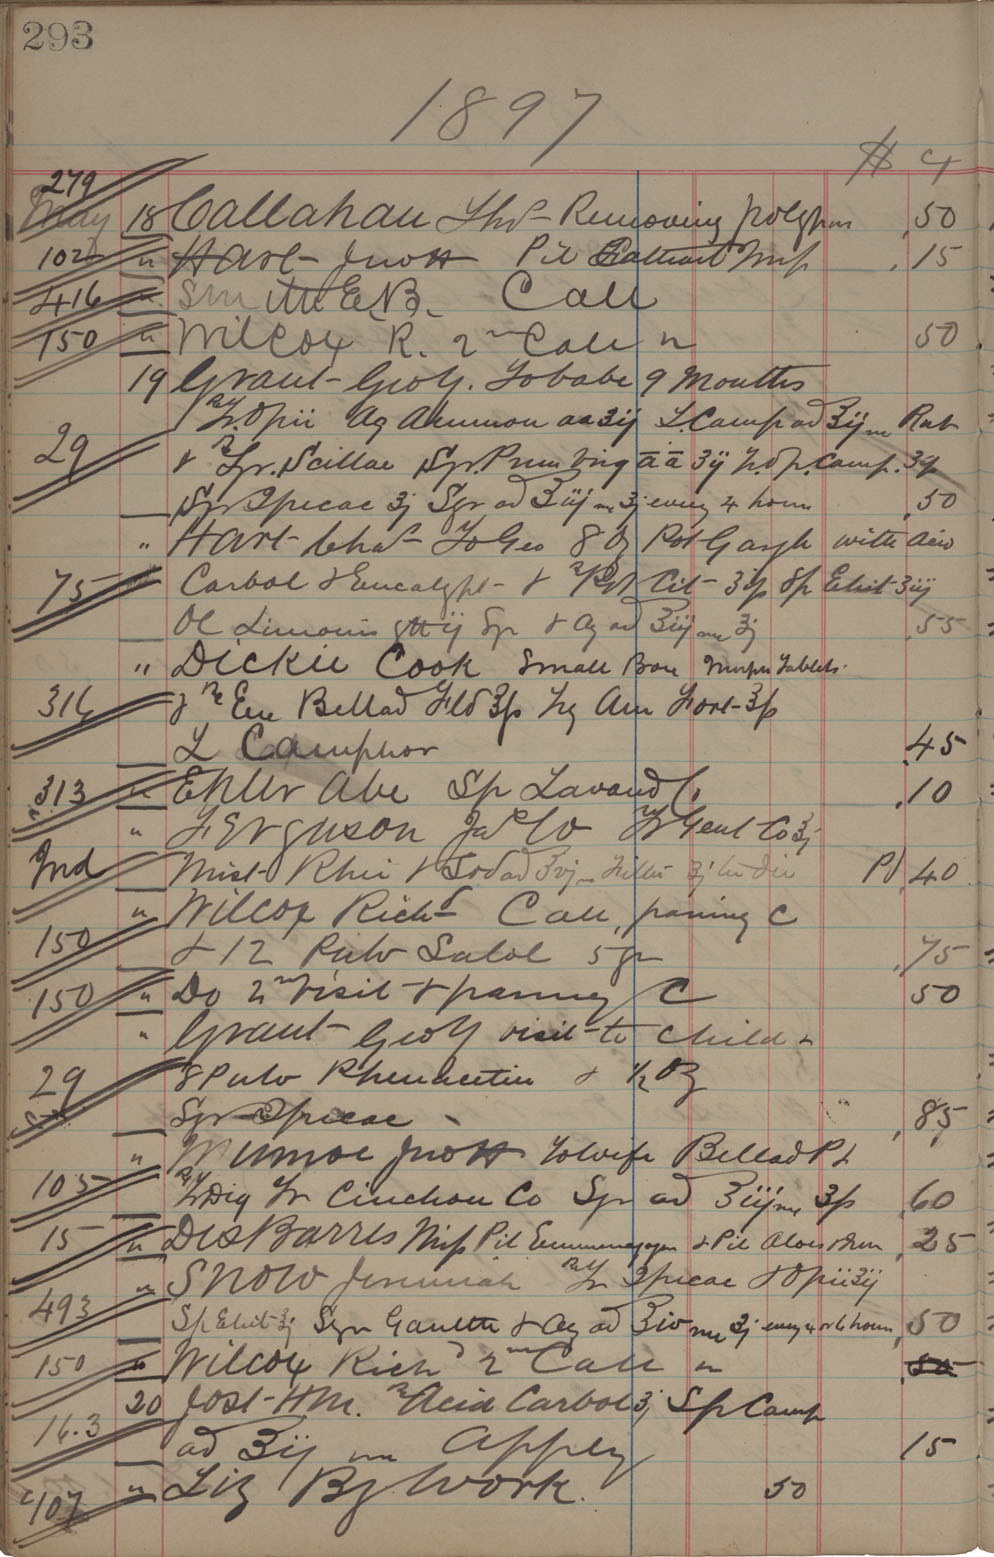 293
1897
$ c
279
May 18 Callahan Thos Removing polypus .50
102 " Hart Jno H Pil Cathart Imp .15
416 " Smith E.B. Call
150 " Wilcox R. 2nd Call " 50
19 Grant Geo Y. To babe 9 Months
Tr. Opii Aq Ammon aa ʒij L. Camp ad ℥ij Rub
29 & Syr. Scillae Syr. Prun Virg āā ʒij Tr. Op. Camp.
Syr Ipecac ʒj Syr ad ℥iij ʒj every 4 hours .50
" Hart Chas To Geo 8 Oz Pot Gargle with
75 Carbol & Eucalypt & Pot Cit Sp Ethit ʒiij
Ol Limonis gtt ij Syr & Aq ad ℥iij ʒj .55
" Dickie Cook Small Box Tablets.
316 Bellad Fld Aq Am Fort
L Camphor .45
313 " Ehler Abe Sp Lavand C .10
" Ferguson Jas W Tr Gent Co ʒj
Ind Mist Rhei & Sod ad ℥vj Pd .40
" Wilcox Richd Call, passing C
150 & 12 Pulv Salol 5 gr .75
150 " Do 2nd Visit & passing C 50
" Grant Geo Y visit to Child &
29 8 Pulv Phenacetin & ½ Oz
Syr Ipecac .85
" Munroe Jno H To wife Bellad Pl
105 Tr Dig Tr Cinchon Co Syr ad ℥iij .60
15 " DesBarres Miss Pil & Pil Aloes .25
" Snow Jeremiah Tr Ipecac & Opii ʒij
493 Sp Ethit ʒj Syr Gaulth & Aq ad ℥iv ʒj every 4 or 6 hours .50
150 " Wilcox Richd 2nd Call " .50
20 Jost H M. Acid Carbol ʒj Sp Camp
16.3 ad ℥ij Apply 15
107 " Liz By Work. 50